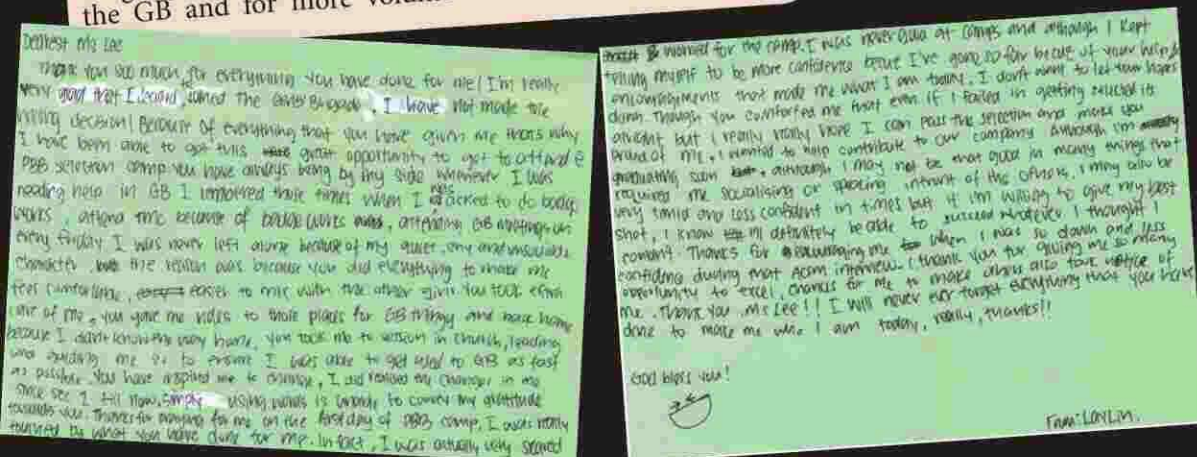 the GB and for more
Dearest Ms Lee
Thank you soo much for everything you have done for me! I'm really
very glad that I joined The Girls' Brigade, I have not made the
wrong decision! Because of everything that you have given me that's why
I have been able to get this great opportunity to get to attend a
selection camp. You have always being by my side whenever I was
needing help in GB. I those times when I was asked to do badge
works, attend because of badge works, attending GB meetings on
every Friday. I was never left alone because of my quiet, shy and unsociable
character, the reason was because you did everything to make me
feel comfortable, easier to mix with the other girls. You took extra
care of me, you gave me rides to those places for GB thingy and back home
because I didn't know the way home, you took me to session in church, leading
and guiding me to ensure I was able to get used to GB as fast
as possible. You have inspired me to change, I did realised the changes in me
since sec 2 till now. Simply using words is to convey my gratitude
towards you. Thanks for praying for me on the first day of camp, I was really
touched by what you have done for me. In fact, I was actually very scared
worried for the camp. I was never good at camps and although I kept
telling myself to be more confident cause I've gone so far because of your
encouragements that made me what I am today, I don't want to let your hopes
down. Though you comforted me that even if I failed in getting selected its
alright but I really really hope I can pass the selection and make you
proud of me, I wanted to help contribute to our company. Although I'm
graduating soon, although I may not be that good in many things that
requires me socialising or speaking infront of the others, I may also be
very timid and less confident in times but if I'm willing to give my best
shot, I know I'll definitely be able to succeed whatever I thought I
couldn't. Thanks for encouraging me when I was so down and less
confident during that interview. I thank you for giving me so many
opportunity to excel, chances for me to make others also take notice of
me. Thank you, Ms Lee!! I will never ever forget everything that you have
done to make me who I am today, really, thanks!!
God bless you!
From: Lay Lin.